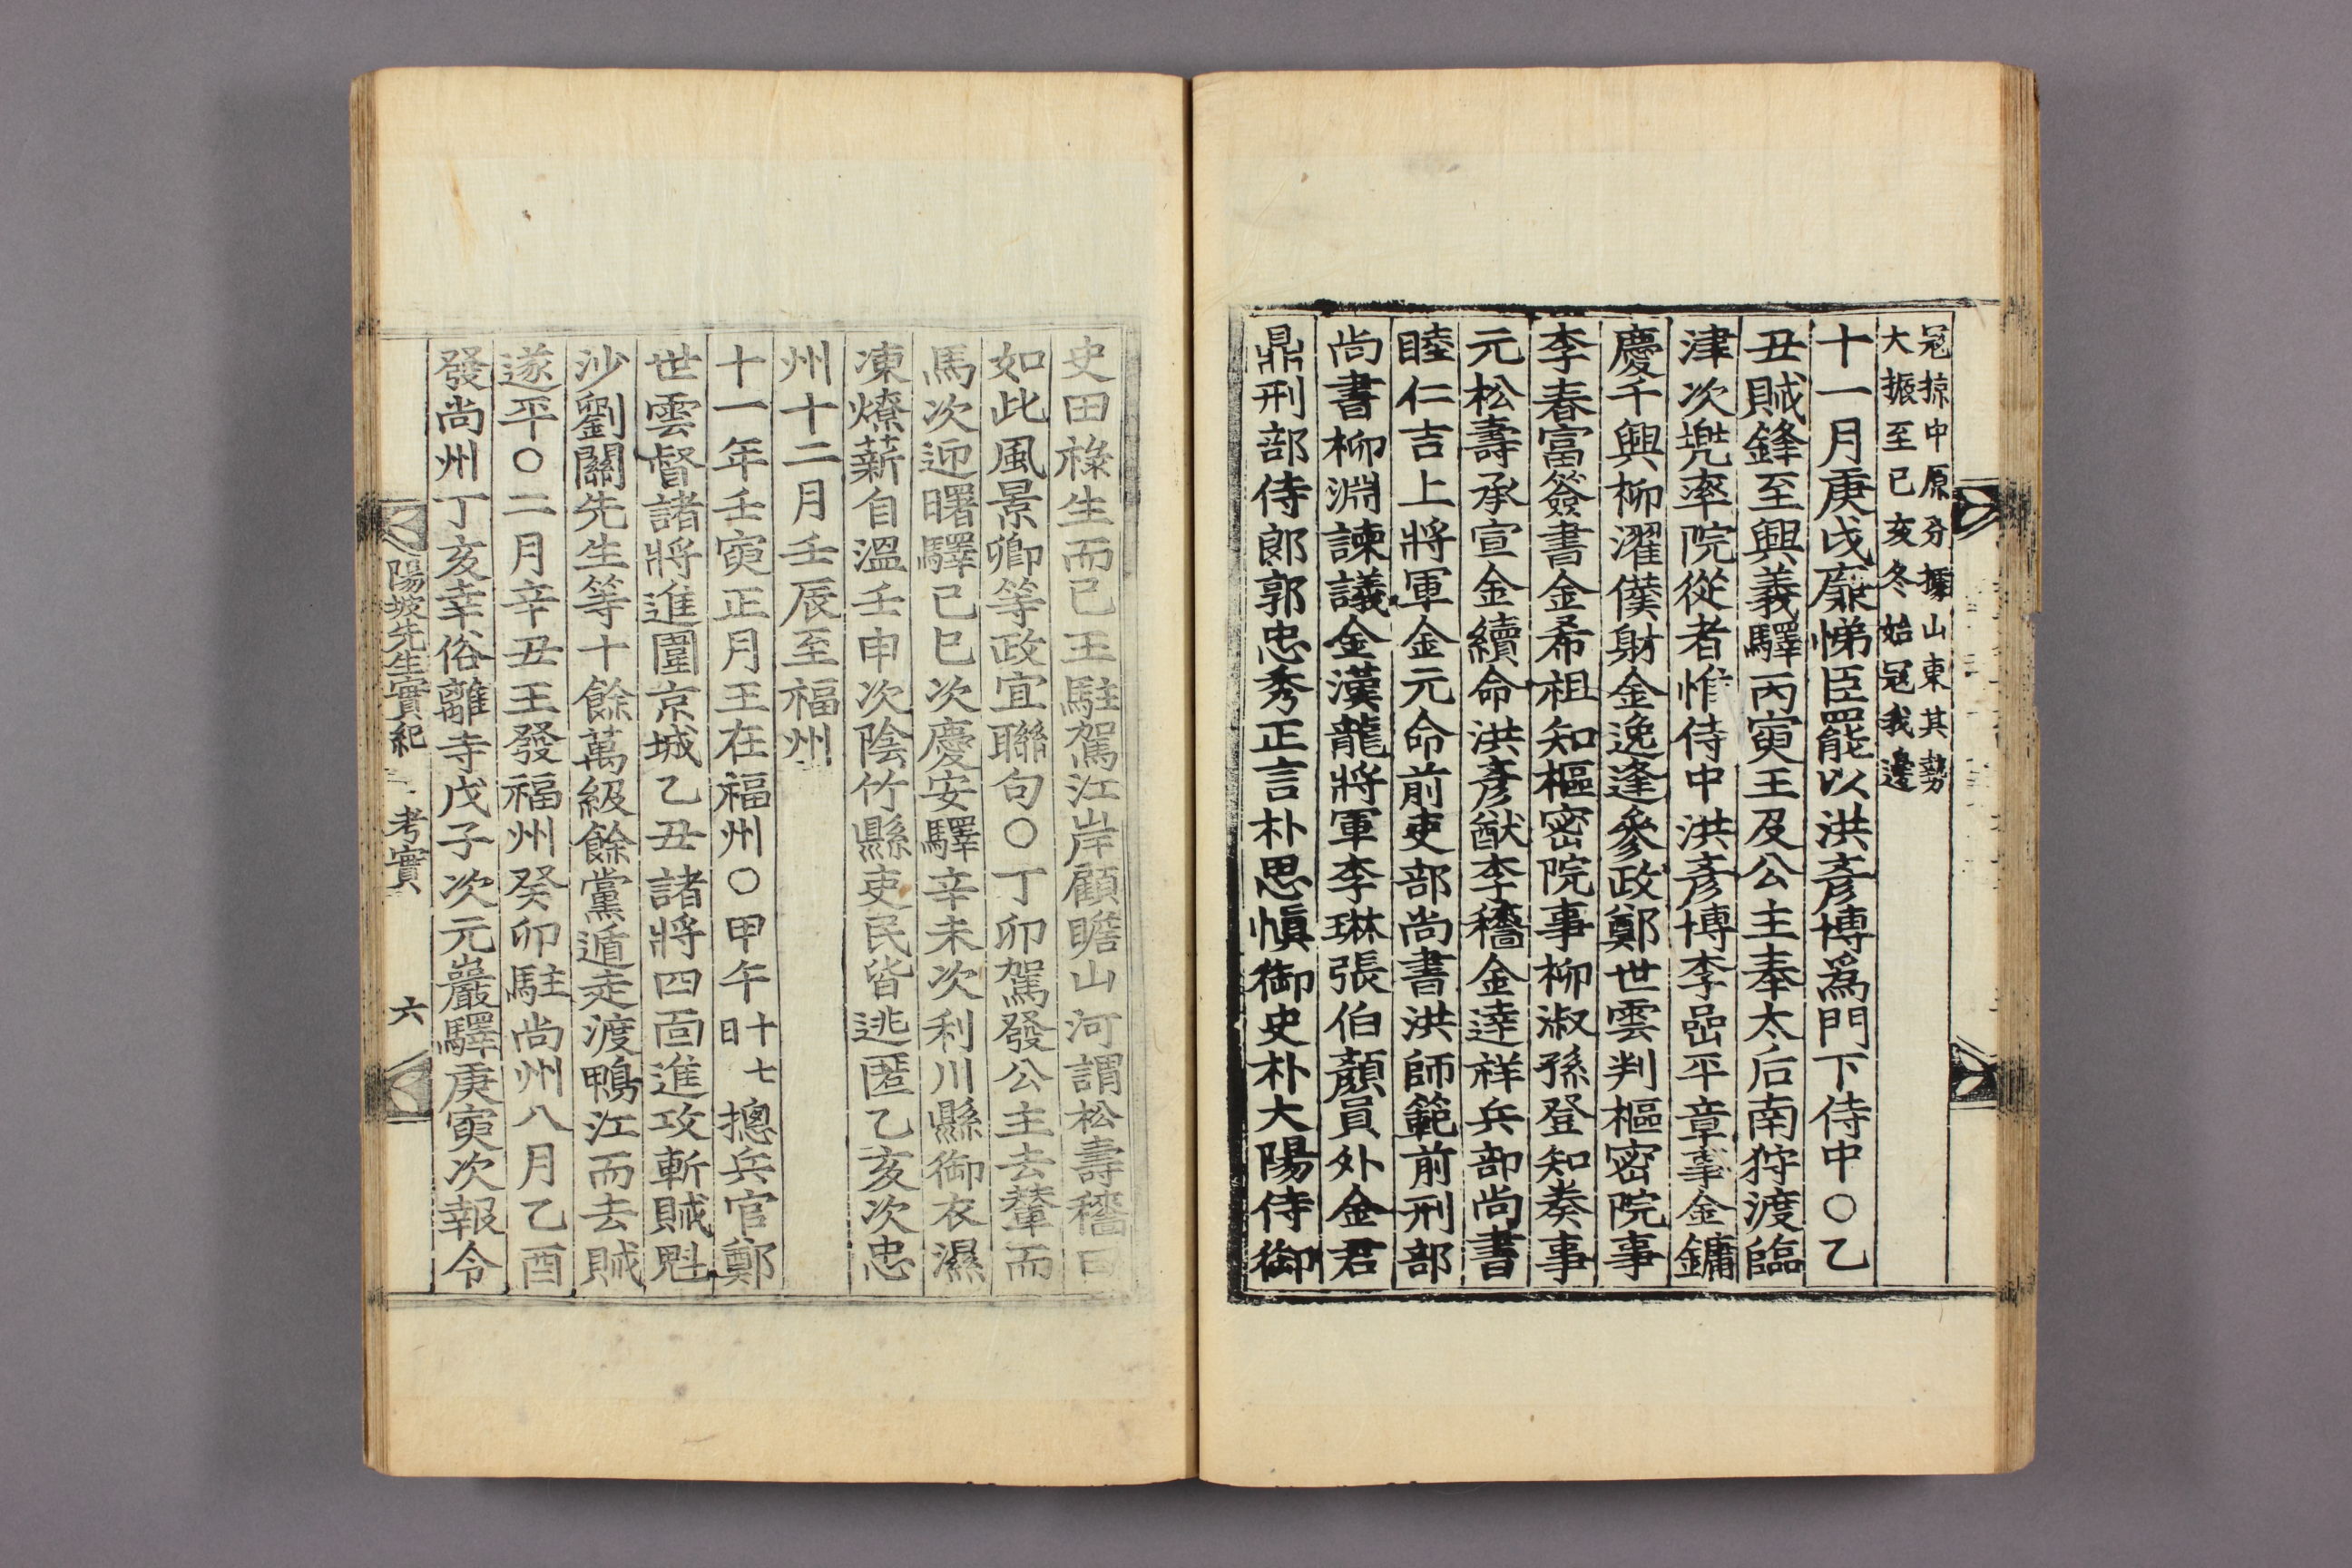 冦掠中原分據山東其勢
大振至已亥冬始冦我邊
十一月庚戌廉悌臣罷以洪彦博爲門下侍中○乙
丑賊鋒至興義驛丙寅王及公主奉太后南狩渡臨
津次兠率院從者惟侍中洪彦博李嵒平章事金鏞
慶千興柳濯僕射金逸逢叅政鄭世雲判樞密院事
李春富簽書金希祖知樞密院事柳淑孫登知奏事
元松壽承宣金續命洪彦猷李穡金達祥兵部尚書
睦仁吉上將軍金元命前吏部尚書洪師範前刑部
尚書柳淵諫議金漢龍將軍李琳張伯顔員外金君
鼎刑部侍郞郭忠秀正言朴思愼御史朴大陽侍御
史田祿生而已王駐駕江岸顧瞻山河謂松壽穡曰
如此風景卿等政宜聯句○丁卯駕發公主去輦而
馬次迎曙驛己巳次慶安驛辛未次利川縣御衣濕
凍燎薪自溫壬申次陰竹縣吏民皆逃匿乙亥次忠
州十二月壬辰至福州
十一年壬寅正月王在福州○甲午十七日摠兵官鄭
世雲督諸將進圍京城乙丑諸將四面進攻斬賊魁
沙劉關先生等十餘萬級餘黨遁走渡鴨江而去賊
遂平○二月辛丑王發福州癸卯駐尚州八月乙酉
發尚州丁亥幸俗離寺戊子次元巖驛庚寅次報令
陽坡先生實紀 考實 六